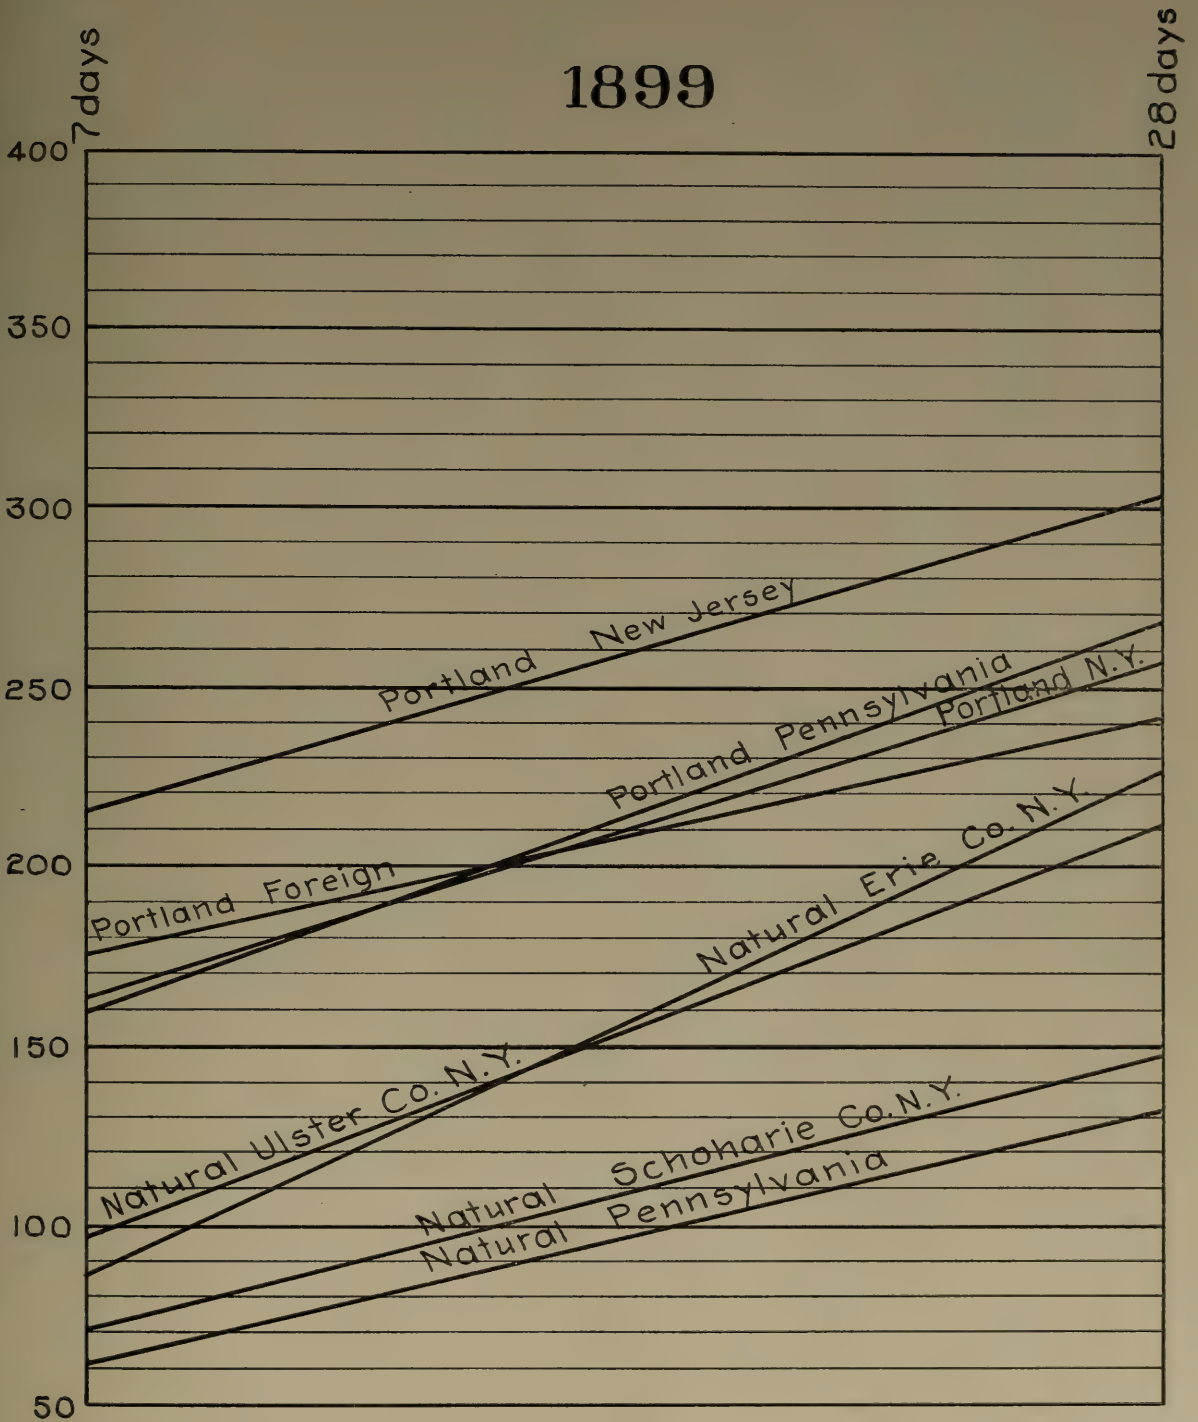 1899
7 days
28 days
400
350
300
250
200
150
100
50
Portland New Jersey
Portland Pennsylvania
Portland N.Y.
Portland Foreign
Natural Erie Co. N.Y.
Natural Ulster Co. N.Y.
Natural Schoharie Co. N.Y.
Natural Pennsylvania